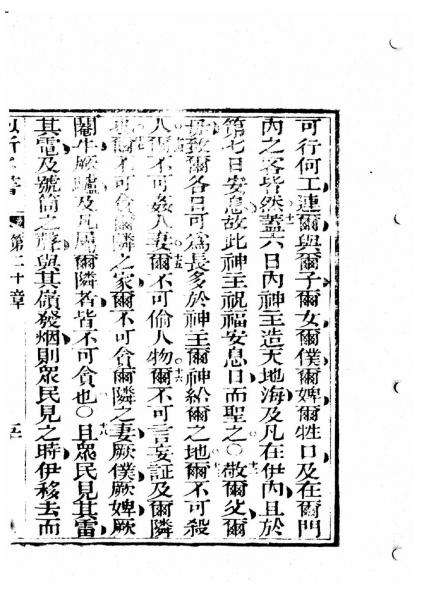 可行何工連爾與爾子爾女爾僕爾婢爾牲口及在爾門
內之客皆然蓋六日內神主造天地海及凡在伊內且於
第七日安息故此神主祝福安息日而聖之〇敬爾父爾
母致爾各日可爲長多於神主爾神給爾之地爾不可殺
人爾不可姦人妻爾不可偷人物爾不可言妄証及爾隣
爾不可貪爾隣之家爾不可貪爾隣之妻厥僕厥婢厥
牛厥驢及凡屬爾隣者皆不可貪也〇且眾民見其雷
其電及號筒之聲與其嶺發烟則眾民見之時伊移去而
第二十章